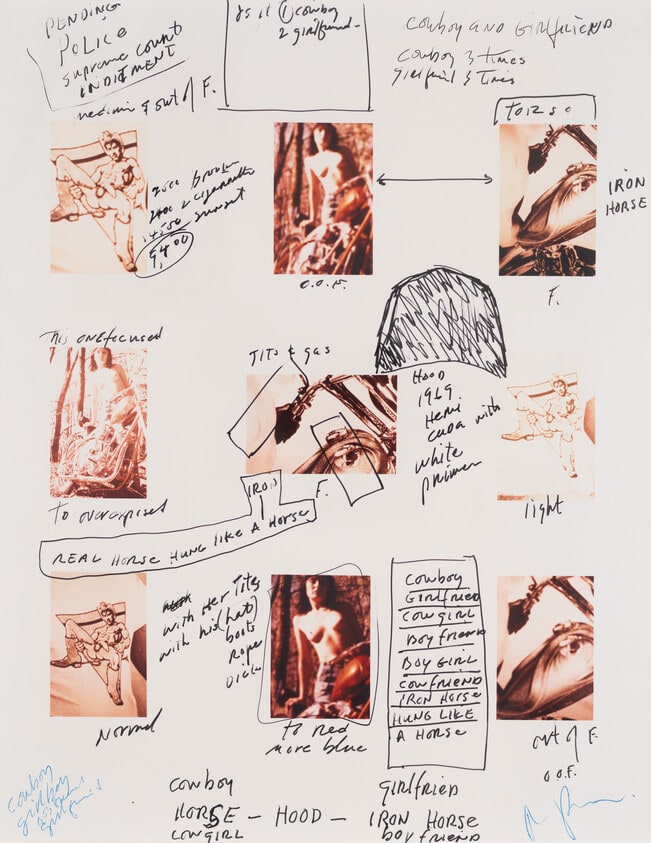 PENDING
POLICE
SUPREME COUNT
INDITEMENT
medium & out of F.
Is it (1) cowboy
2 girlfriend-
COWBOY AND GIRLFRIEND
COWBOY 3 TIMES
girlfrind 3 Times
TORSO
2400 2 cigarettes
4500 sunset
9,400
IRON
HORSE
O.O.F.
F.
This one focused
TITS & gas
HOOD
1969
Hemi
CUDA with
white
primer
To overexposed
IRON
F.
light
REAL HORSE HUNG LIKE A HORSE
with Her Tits
with his (hat)
boots
Rope
Dick
COWBOY
GIRLFRIED
COWGIRL
BOYFRIEND
BOY GIRL
COWFRIEND
IRON HORSE
HUNG LIKE
A HORSE
NORMAL
To Red
more blue
out of F.
O.O.F.
COWBOY
GIRLFRIED
HORSE - HOOD - IRON HORSE
COWGIRL
BOYFRIEND
cowboy
girlboy